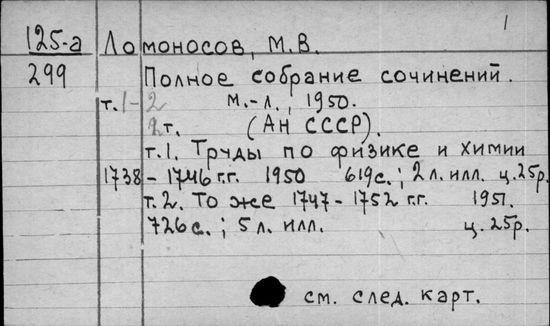 1
125-а Ломоносов, М.В.
299 Полное собрание сочинений.
т. 1-2 М.-Л., 1950.
2т. (АН СССР).
т.1. Труды по физике и химии
1738 - 1746 г.г. 1950 619с.; 2 л. илл. ц.25р.
т.2. То же 1747 - 1752 г.г. 1951.
726с.; 5 л. илл. ц.25р.
см. след. карт.